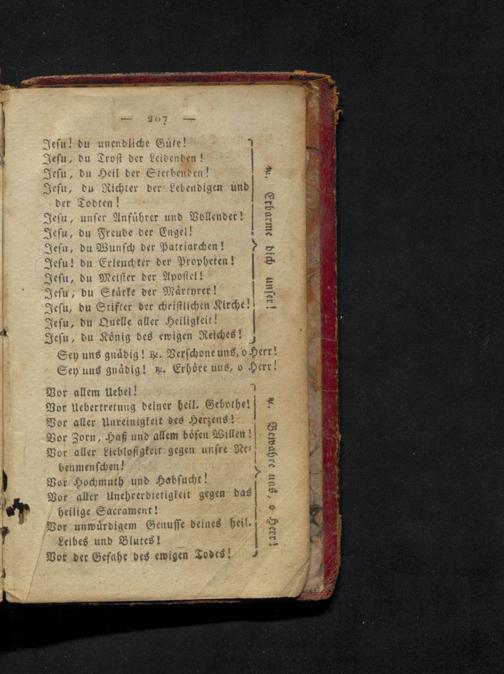 — 207 —
Jesu! du unendliche Güte!
Jesu, du Trost der Leidenden!
Jesu, du Heil der Sterbenden!
Jesu, du Richter der Lebendigen und
der Todten!
Jesu, unser Anführer und Vollender!
Jesu, du Freude der Engel!
Jesu, du Wunsch der Patriarchen!
Jesu! du Erleuchter der Propheten!
Jesu, du Meister der Apostel!
Jesu, du Stärke der Märtyrer!
Jesu, du Stifter der christlichen Kirche!
Jesu, du Quelle aller Heiligkeit!
Jesu, du König des ewigen Reiches!
℟. Erbarme dich unser!
Sey uns gnädig! ℟. Verschone uns, o Herr!
Sey uns gnädig! ℟. Erhöre uns, o Herr!
Vor allem Uebel!
Vor Uebertretung deiner heil. Gebothe!
Vor aller Unreinigkeit des Herzens!
Vor Zorn, Haß und allem bösen Willen!
Vor aller Lieblosigkeit gegen unsre Ne-
benmenschen!
Vor Hochmuth und Habsucht!
Vor aller Unehrerbietigkeit gegen das
heilige Sacrament!
Vor unwürdigem Genusse deines heil.
Leibes und Blutes!
Vor der Gefahr des ewigen Todes!
℟. Bewahre uns, o Herr!